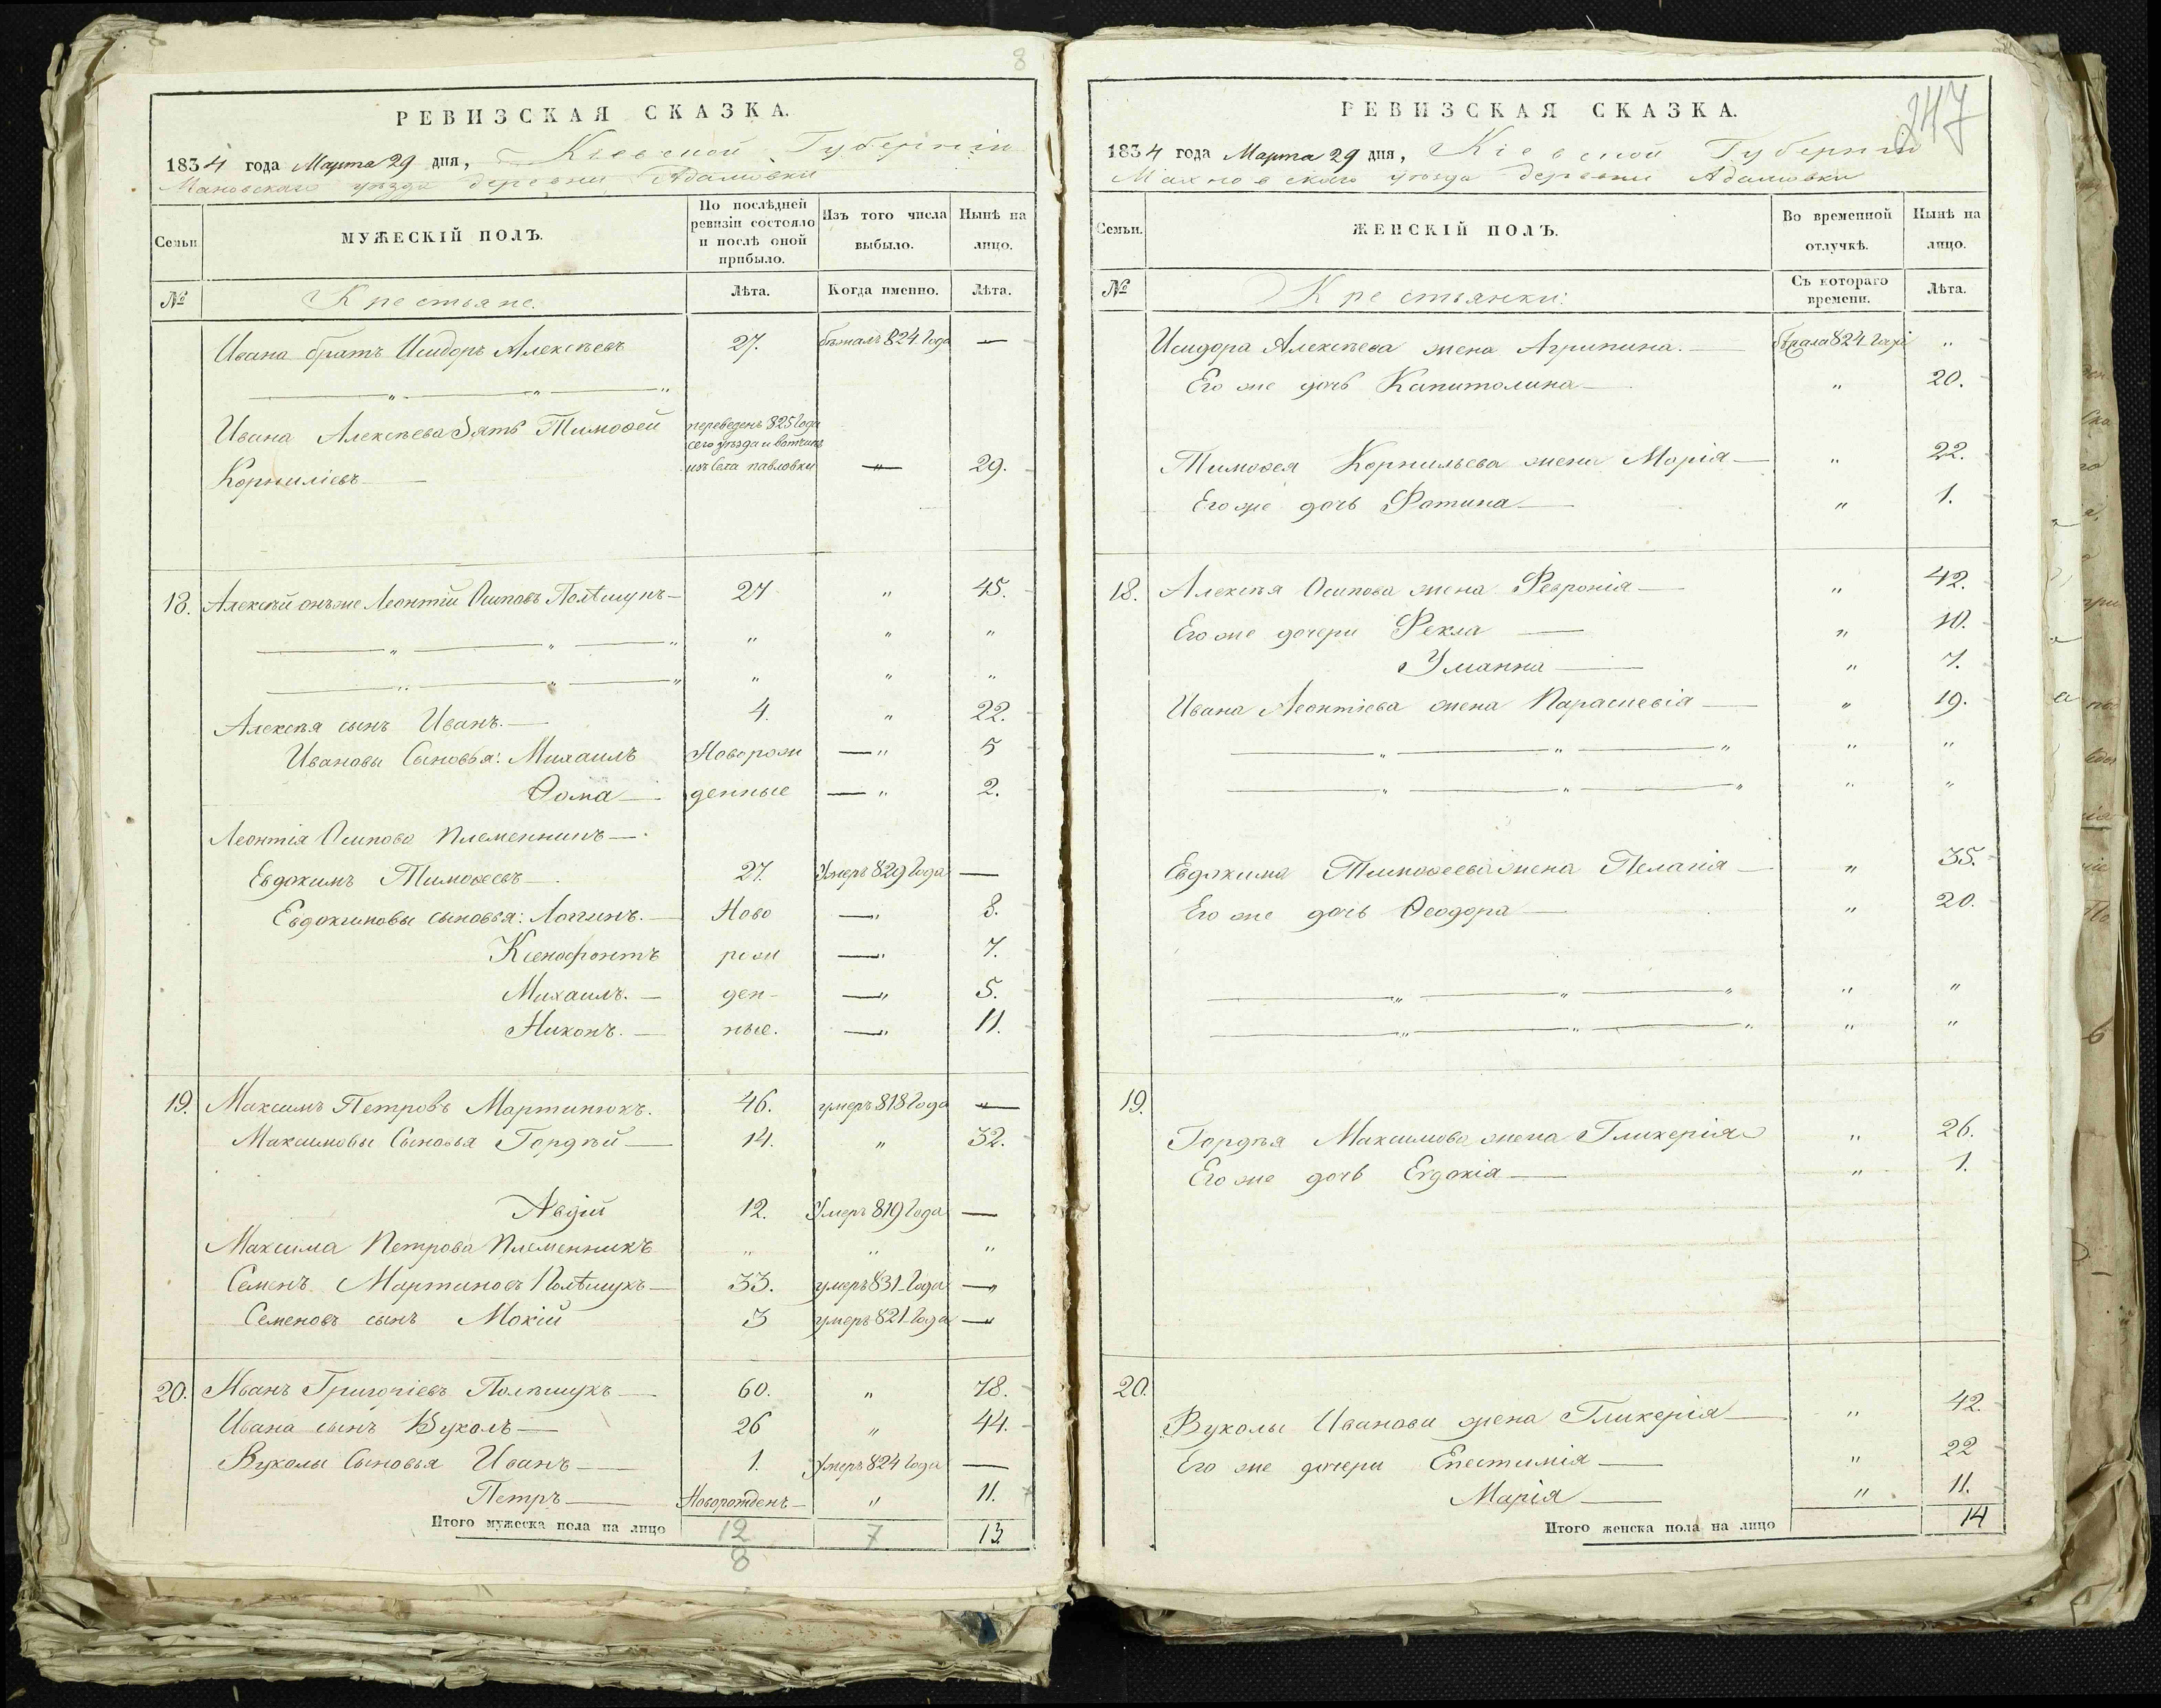 8
РЕВИЗСКАЯ СКАЗКА.
1834 года Марта 29 дня, Кіевской Губерніи
Махновскаго уѣзда деревни Адамовки
Семьи
МУЖЕСКІЙ ПОЛЪ.
По послѣдней ревизіи состояло и послѣ оной прибыло.
Изъ того числа выбыло.
Нынѣ на лицо.
№ Крестьяне. Лѣта. Когда именно. Лѣта.
Ивана братъ Исидоръ Алексѣевъ 27. бѣжалъ 824 года —
— „ — „ — „
Ивана Алексѣева Зять Тимофей переведенъ 825 года
сего уѣзда и вотчины
Корниліевъ — изъ Села павловки — 29.
18. Алексѣй онъ же Леонтій Осиповъ Полѣщукъ — 27 „ 45.
— „ — „ — „ „ „ „
— „ — „ — „ „ „ „
Алексѣя сынъ Иванъ. — 4. „ 22.
Ивановы Сыновья: Михаилъ Новорож — „ 5
Ѳома — денные — „ 2.
Леонтія Осипова Племенникъ —
Евдокимъ Тимофеевъ — 27. Умеръ 829 года —
Евдокимовы сыновья: Логинъ. — Ново — „ 8.
Ксенофонтъ рож — „ 7.
Михаилъ. — ден- — „ 5.
Никонъ. — ные. — „ 11.
19. Максимъ Петровъ Мартинюкъ. 46. умеръ 818 года —
Максимовы Сыновья Гордѣй — 14. „ 32.
Авдій 12. Умеръ 819 года —
Максима Петрова Племенникъ „ „ „
Семенъ Мартиновъ Полѣщукъ — 33. умеръ 831 года —
Семеновъ сынъ Мокій 3 умеръ 821 года —
20. Иванъ Григоріевъ Полѣщукъ — 60. „ 78.
Ивана сынъ Вуколъ — 26 „ 44.
Вуколы Сыновья Иванъ — 1. Умеръ 824 года —
Петръ — Новорожденъ — „ 11.
Итого мужеска пола на лицо 12 7 13
8
247
РЕВИЗСКАЯ СКАЗКА.
1834 года Марта 29 дня, Кіевской Губерніи
Махновскаго уѣзда деревни Адамовки
Семьи.
ЖЕНСКІЙ ПОЛЪ.
Во временной отлучкѣ.
Нынѣ на лицо.
№ Крестьянки: Съ котораго времени. Лѣта.
Исидора Алексѣева жена Агрипина. — 824 года „
Его же дочь Капитолина — „ 20.
Тимофея Корнильева жена Марія — „ 22.
Его же дочь Фотина — „ 1.
18. Алексѣя Осипова жена Февронія — „ 42.
Его же дочери Фекла — „ 10.
Уманна — „ 7.
Ивана Леонтіева жена Параскевія — „ 19.
— „ — „ — „ „ „
— „ — „ — „ „ „
Евдокима Тимофеева жена Пелагія — „ 35.
Его же дочь Ѳеодора — „ 20.
— „ — „ — „ „ „
— „ — „ — „ „ „
19.
Гордѣя Максимова жена Гликерія „ 26.
Его же дочь Евдокія — „ 1.
20.
Вуколы Иванова жена Гликерія — „ 42.
Его же дочери Епестимія — „ 22
Марія — „ 11.
Итого женска пола на лицо 14